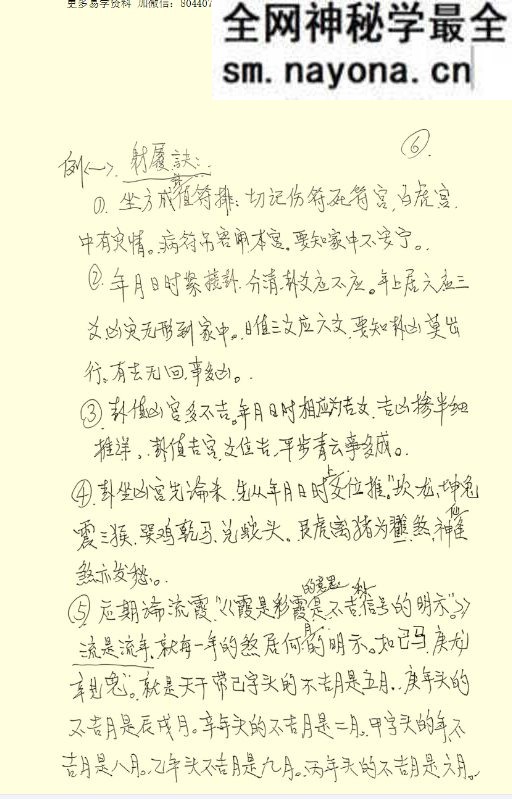 更多易学资料 加微信：804407
全网神秘学最全
sm.nayona.cn
⑥.
例<一>. 射覆訣：.
①. 坐方或值符排：切记伤符死符宫，白虎宫.
中有灾情。病符吊客闹本宫。要知家中不安宁。.
②. 年月日时紧接卦. 分清卦爻应不应。年上居六应三
爻凶灾无形到家中。日值三爻应六爻，要知卦凶莫出
行。有去无回，事多凶。.
③. 卦值凶宫多不吉。年月日时相应为吉爻. 吉凶掺半细
推详。. 卦值吉宫，爻位吉，平步青云事多成。.
④. 卦坐凶宫先论来. 先从年月日时上爻位推。"坎龙，坤兔
震三猴. 巽鸡乾马，兑蛇头。艮虎离猪为 煞，神仙
煞亦发愁。.
⑤. 后期论流霞."《霞是彩霞的意思是不吉信号的明示"》
流是流年. 就每一年的煞居何月的明示。如己马，庚龙
辛见兔". 就是天干带己字头的不吉月是五月。. 庚年头的
不吉月是辰戌月。辛年头的不吉月是二月。甲字头的年，不
吉月是八月。乙年头不吉月是九月。丙年头的不吉月是六月。